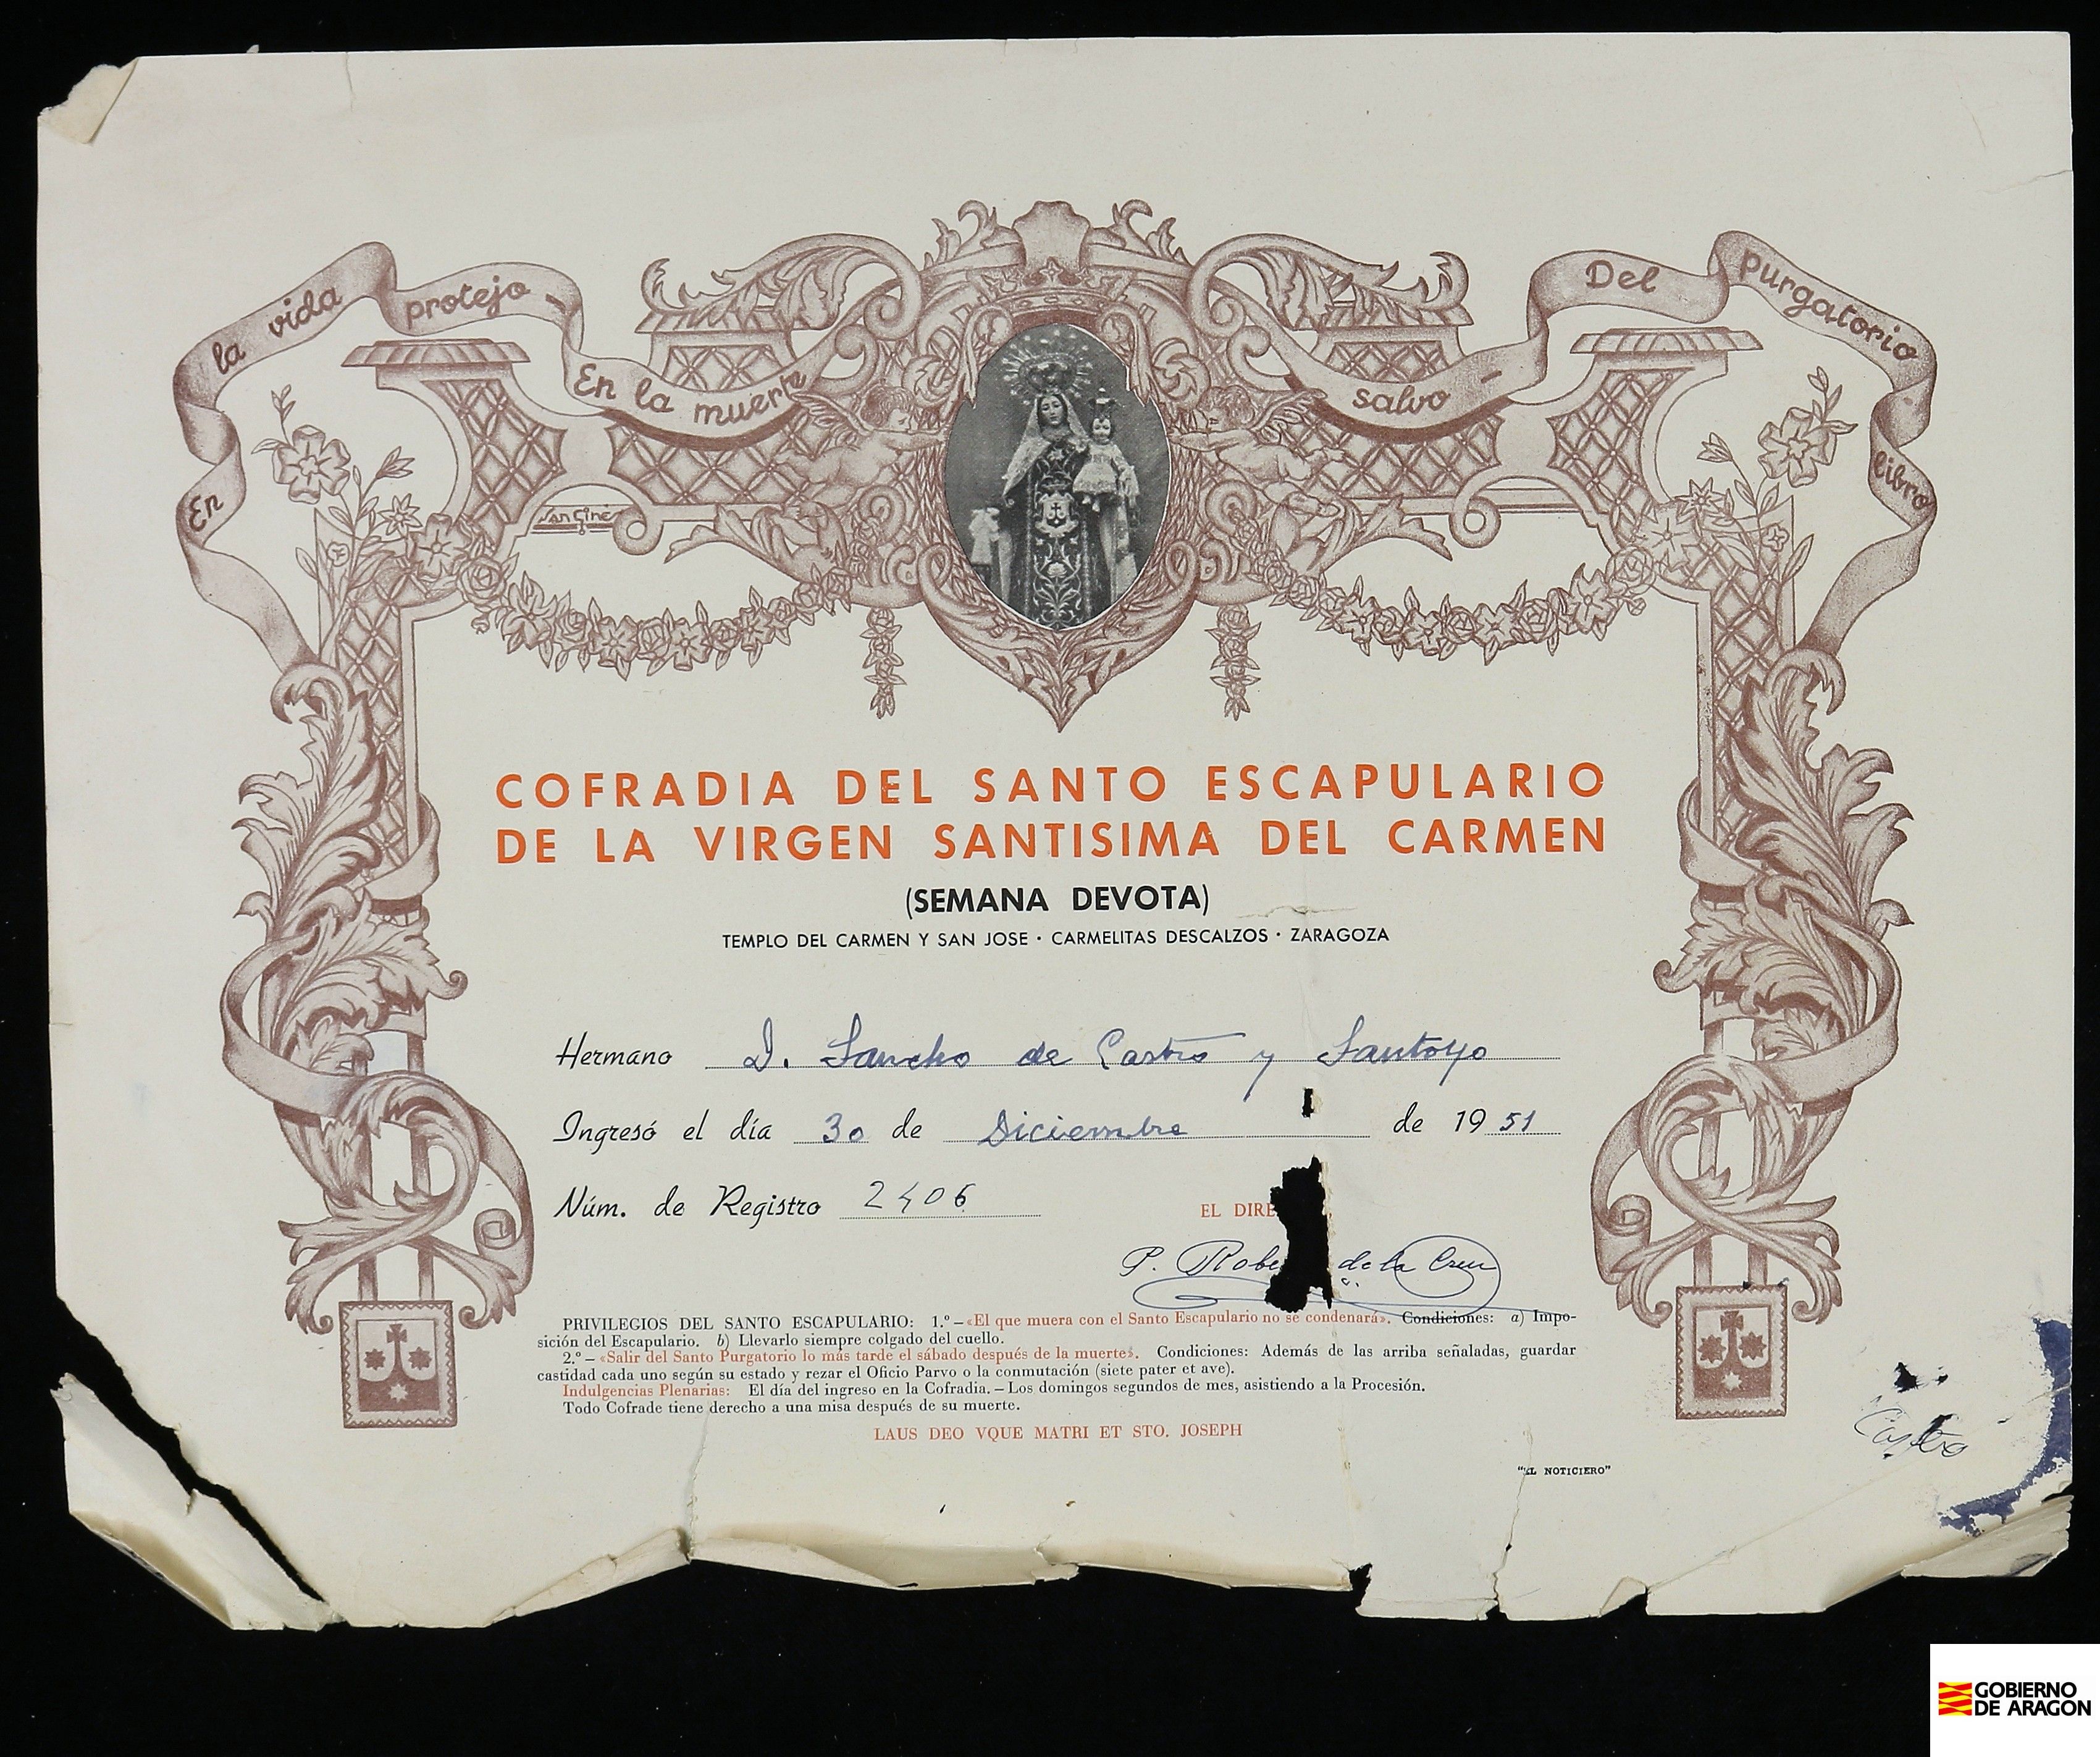 En la vida protejo - En la muerte salvo - Del purgatorio libro
SanGinés
COFRADIA DEL SANTO ESCAPULARIO
DE LA VIRGEN SANTISIMA DEL CARMEN
(SEMANA DEVOTA)
TEMPLO DEL CARMEN Y SAN JOSE · CARMELITAS DESCALZOS · ZARAGOZA
Hermano D. Sancho de Castro y Santoyo
Ingresó el día 30 de Diciembre de 1951
Núm. de Registro 2406
EL DIRE
P. Robe de la Cruz
PRIVILEGIOS DEL SANTO ESCAPULARIO: 1.º – «El que muera con el Santo Escapulario no se condenará». Condiciones: a) Impo-
sición del Escapulario. b) Llevarlo siempre colgado del cuello.
2.º – «Salir del Santo Purgatorio lo más tarde el sábado después de la muerte». Condiciones: Además de las arriba señaladas, guardar
castidad cada uno según su estado y rezar el Oficio Parvo o la conmutación (siete pater et ave).
Indulgencias Plenarias: El día del ingreso en la Cofradia. – Los domingos segundos de mes, asistiendo a la Procesión.
Todo Cofrade tiene derecho a una misa después de su muerte.
LAUS DEO VQUE MATRI ET STO. JOSEPH
"EL NOTICIERO"
Castro
GOBIERNO
DE ARAGON